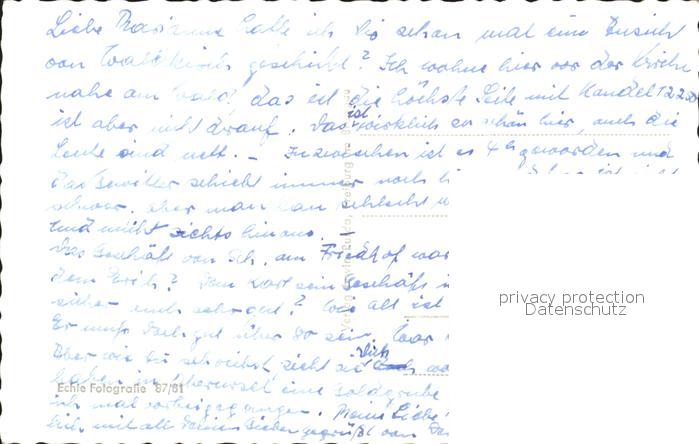 Liebe Marianne hatte ich Dir schon mal eine Ansicht
von Waldkirch geschickt? Ich wohne hier vor der Kirche
nahe am Wald, das ist die höchste Seite mit Kandel
ist aber nicht drauf. Das ist wirklich so schön hier, auch die
Leute sind nett. – Inzwischen ist es 4 h geworden und
das Gewitter schiebt immer noch
schwer, aber man kann schlecht
und nichts hinaus. –
Das Geschäft von Sch. am Friedhof war
dem Erich? Dem Karl sein Geschäft
sicher auch sehr gut? Wie alt ist
Er muss doch gut über 80 sein. War
Aber wie Du schreibst zieht es Dich
haben in Oberursel eine Goldgrube
ich mal vorbeigegangen. Meine Liebe
mit all Deinen Lieben gegrüßt von
Echte Fotografie 87/81
privacy protection
Datenschutz